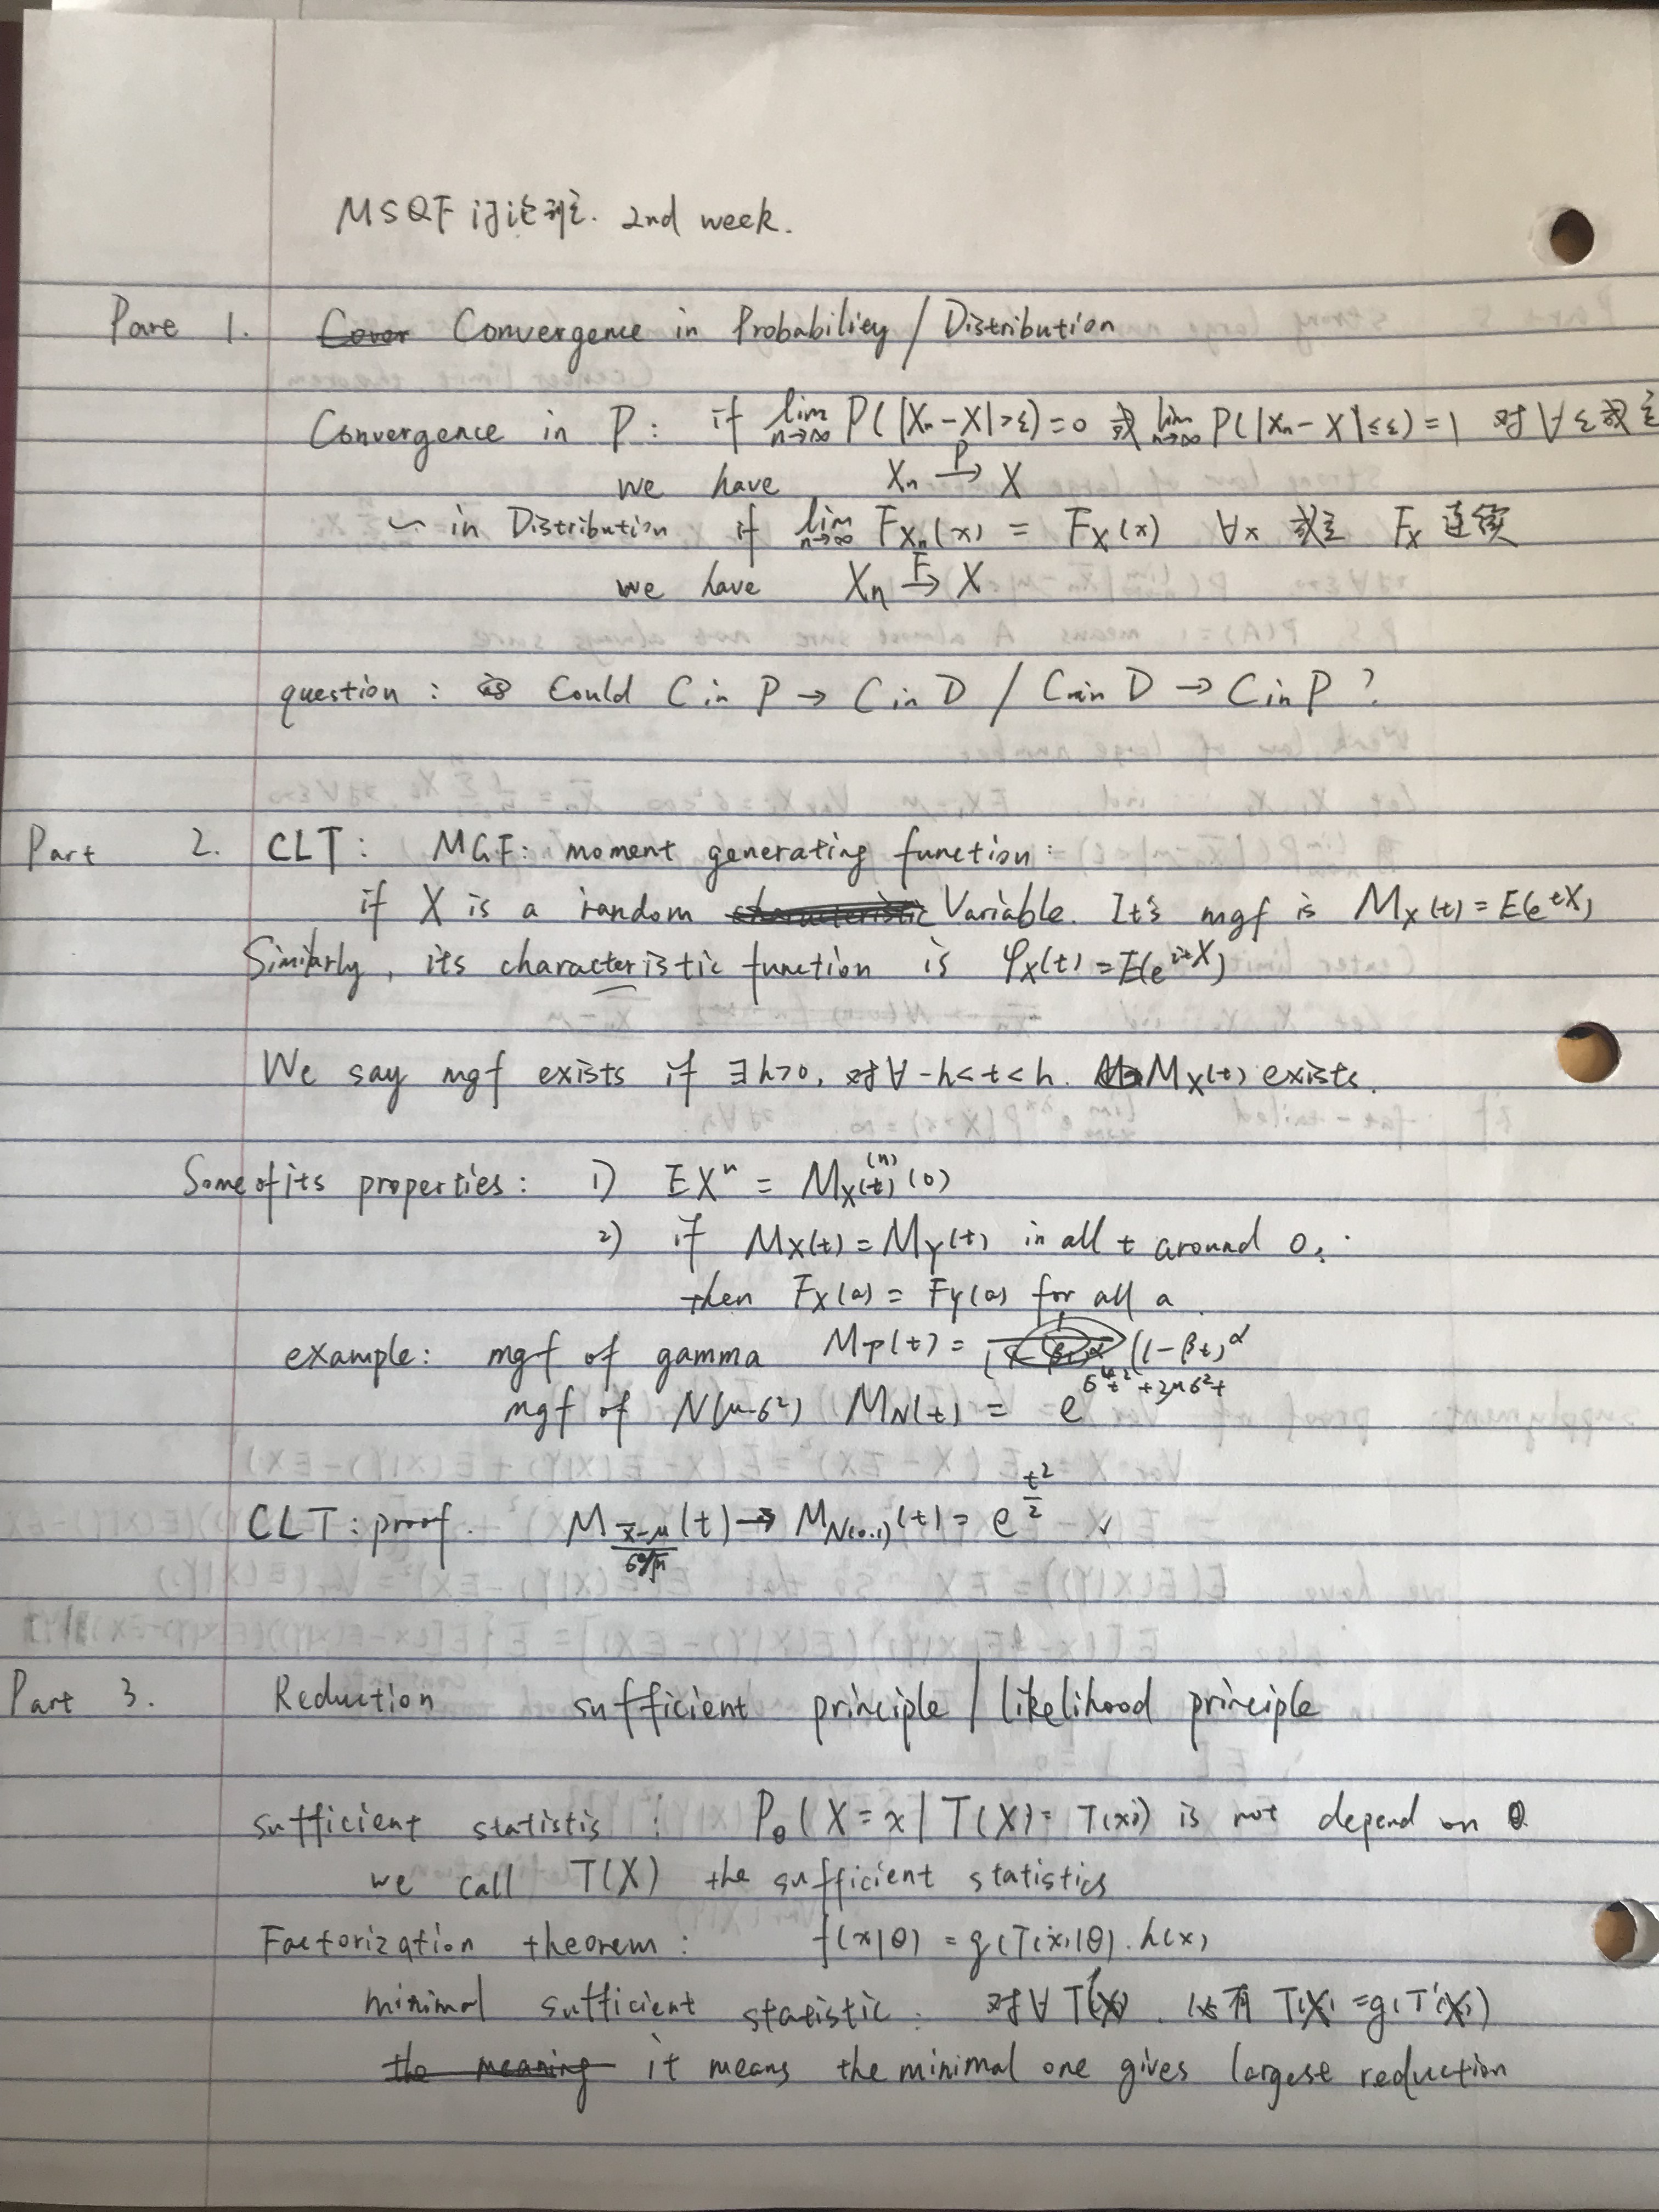 MSQF 讨论班. 2nd week.
Part 1. Cover Convergence in Probability / Distribution
Convergence in P : if lim n→∞ P(|Xn-X|>ε)=0 或 lim n→∞ P(|Xn-X|≤ε)=1 对∀ε成立
we have Xn →P X
~ in Distribution if lim n→∞ FXn(x) = FX(x) ∀x 或 FX 连续
we have Xn →F X
question : Could C in P → C in D / C in D → C in P ?
Part 2. CLT : MGF: moment generating function :
if X is a random characteristic Variable. It's mgf is MX(t)=E(e^tX)
Similarly, its characteristic function is φX(t)=E(e^itX)
We say mgf exists if ∃h>0, 对∀-h<t<h. MX(t) exists.
Some of its properties : 1) EX^n = MX(t)^(n)(0)
2) if MX(t)=MY(t) in all t around 0,
then FX(a) = FY(a) for all a.
example: mgf of gamma MΓ(t) = (1-βt)^α
mgf of N(μ-σ²) MN(t) = e^σ⁴t²+2μσ²t
CLT : proof. M (x̄-μ)/(σ/√n) (t) → MN(0,1)(t) = e^t²/2 ✓
Part 3. Reduction sufficient principle / likelihood principle
sufficient statistis : Pθ(X=x|T(X)=T(x)) is not depend on θ
we call T(X) the sufficient statistics
Factorization theorem : f(x|θ) = g(T(x)|θ).h(x)
minimal sufficient statistic : 对∀T'(X). 有 T(X)=g(T'(X))
the meaning it means the minimal one gives largest reduction